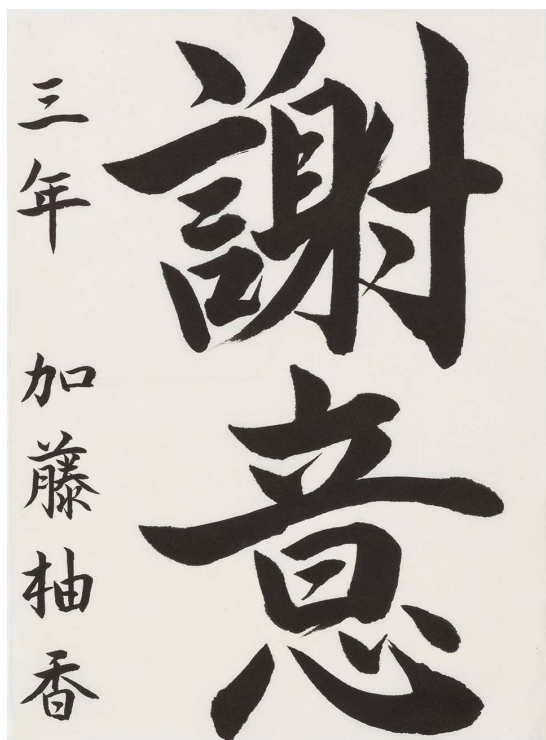 謝意
三年 加藤柚香